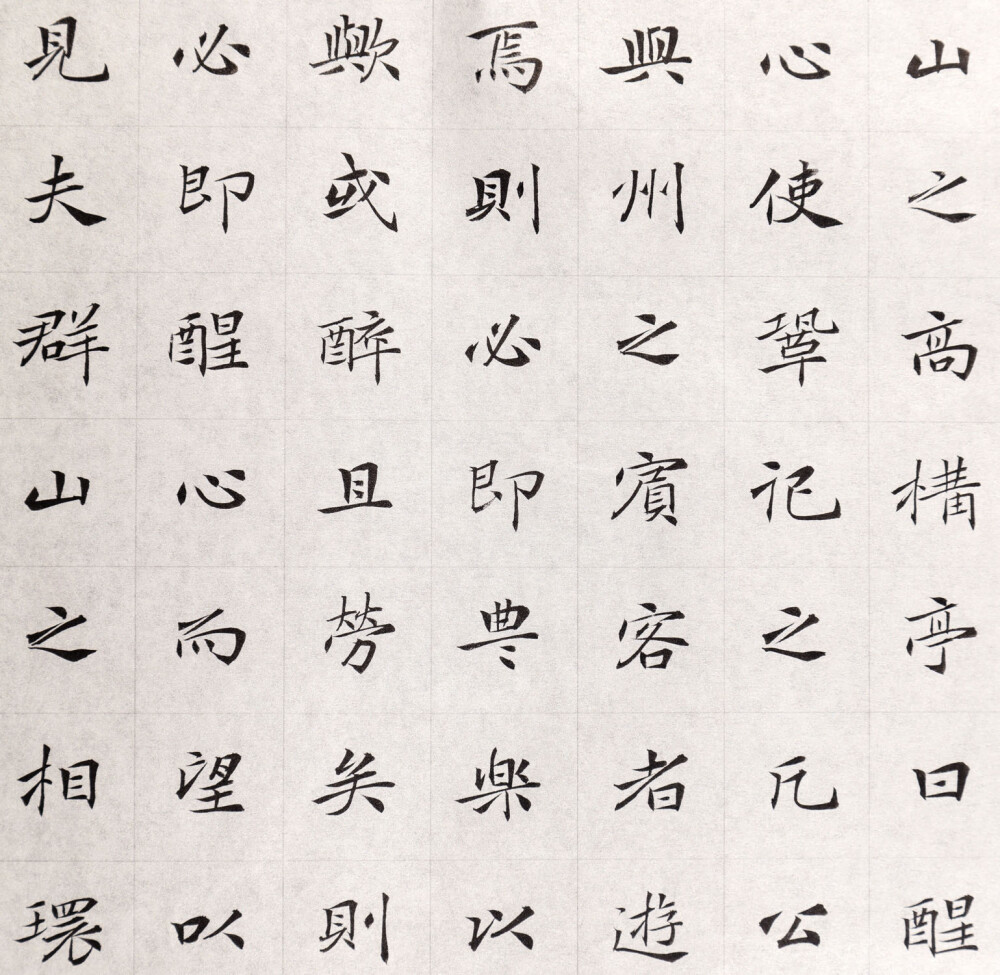 山之高構亭曰醒
心使鞏記之凡公
與州之賓客者遊
焉則必即豊楽以
歟或醉且勞矣則
必即醒心而望以
見夫群山之相環